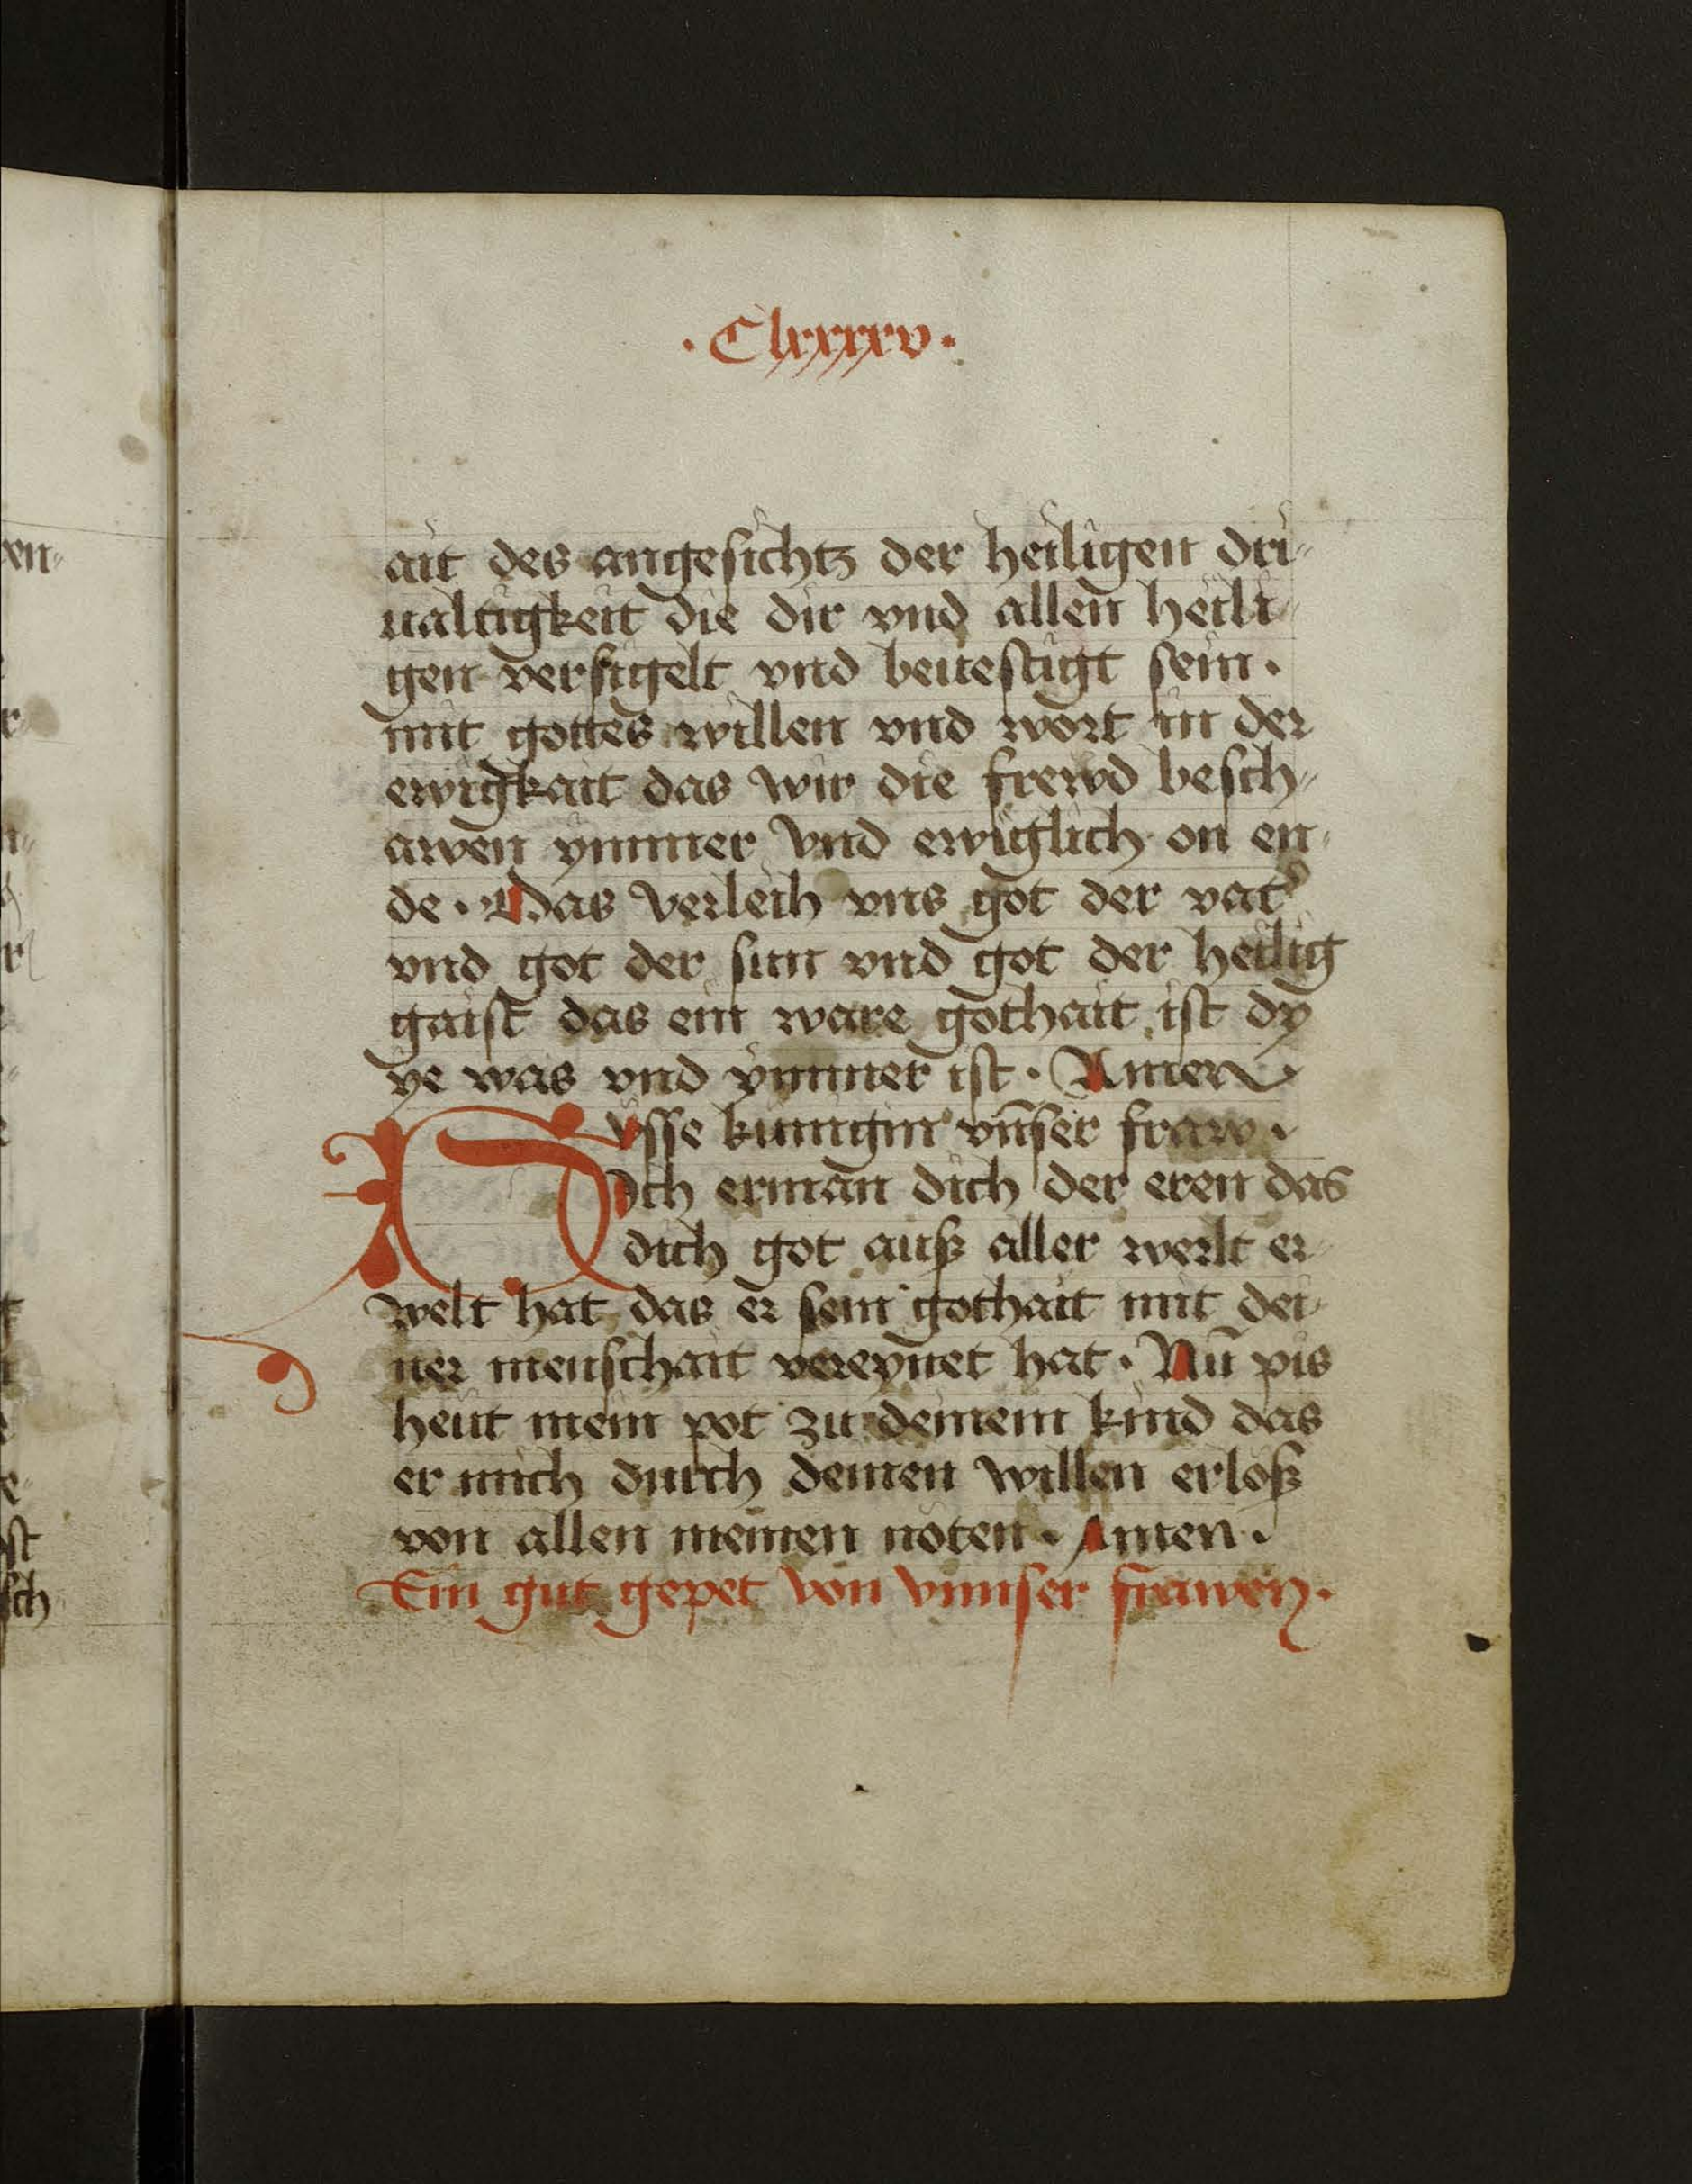 · Clxxxxv ·
ait des angesichtz der heiligen dri-
ualtigkeit die dir vnd allen heili-
gen versigelt vnd beuestigt sein ·
mit gottes willen vnd wort in der
ewigkait das wir die frewd besch-
awen ymmer vnd ewiglich on en-
de · Das verleih vns got der vat᾽
vnd got der sun vnd got der heilig
gaist das ein ware gothait ist dy
ye was vnd ymmer ist · Amen
Susse kunigin vn̄ser fraw ·
Ich erman dich der eren das
dich got auß aller werlt er-
welt hat das er sein gothait mit dei-
ner menschait vereynet hat · Nū pis
heut mein pot zu deinem kind das
er mich durch deinen willen erloß
von allen meinen noten · Amen ·
Ein gut gepet von vnnser frawen ·